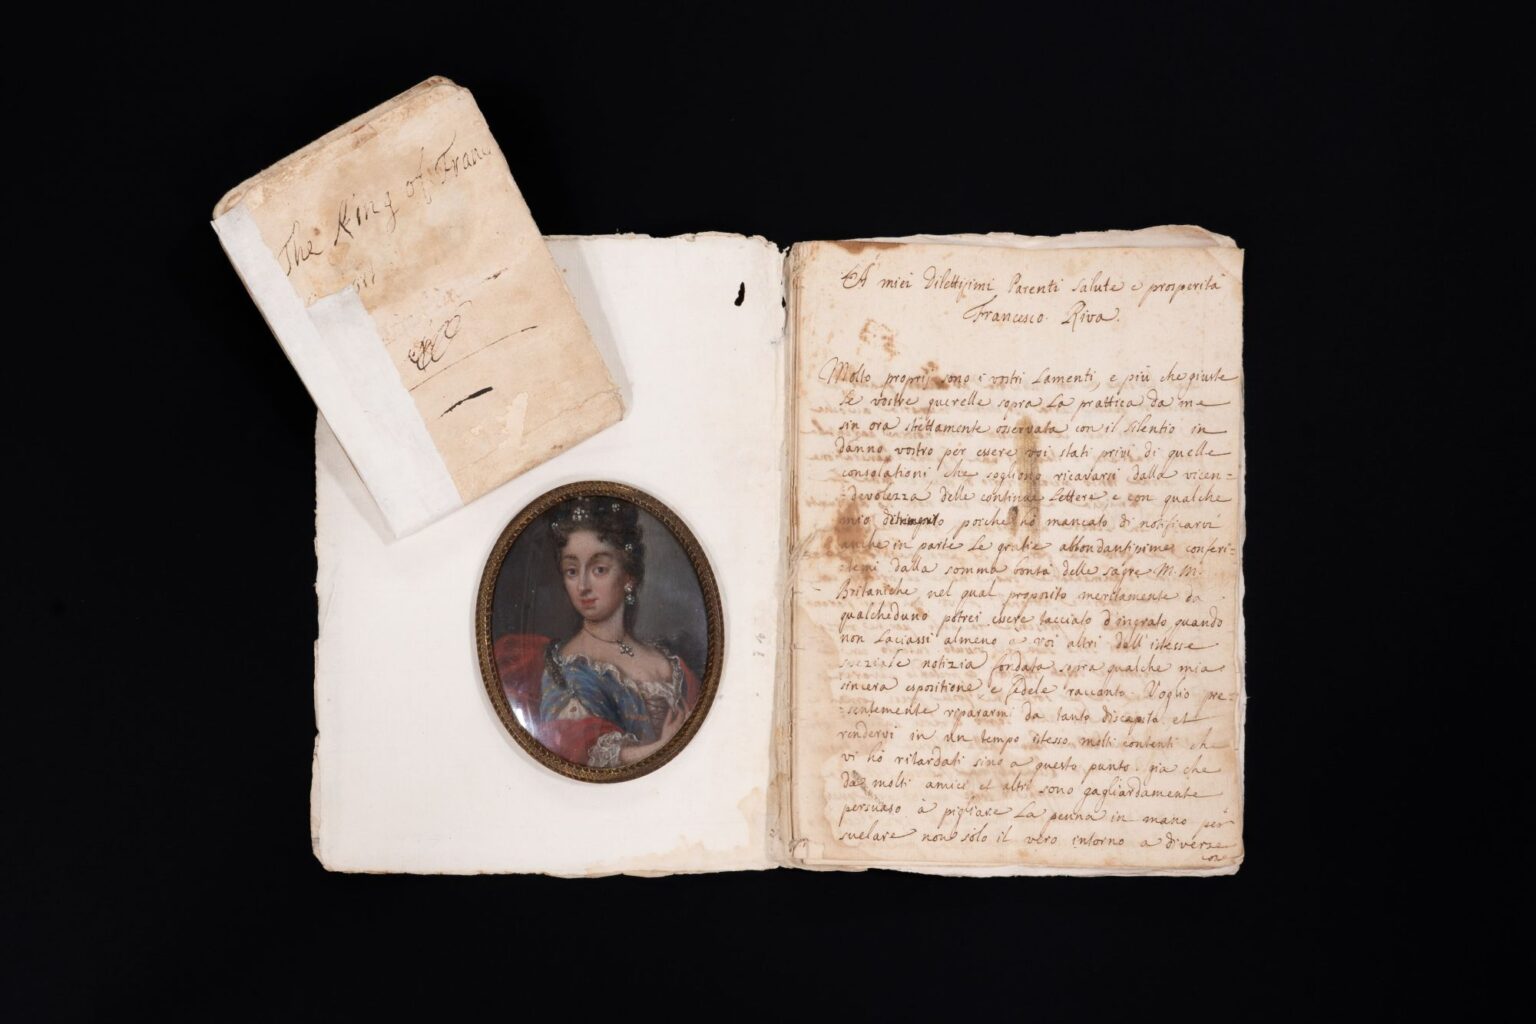 The King of Franc
A miei Dilettisimi Parenti salute e prosperità
Francesco Riva.
Molto proprij sono i vostri Lamenti, e più che giuste
Le vostre querelle sopra La prattica da me
sin ora strettamente osservata con il silentio in
danno vostro per essere voi stati privi di quelle
consolationi, che sogliono ricavarsi dalla vicen=
=devolezza delle continue Lettere e con qualche
mio detrimento porche hò mancato di notificarvi
anche in parte Le gratie abbondantissime conferi=
temi dalla somma bontà delle sacre M. M.
Britaniche, nel qual proposito meritamente da
qualcheduno potrei essere tacciato d'ingrato quando
non Laciassi almeno à voi altri dell'istesse
speziale notizia fondata sopra qualche mia
sincera espositione e fedele racconto. Voglio pre=
=sentemente ripararmi da tanto discapito et
rendervi in un tempo istesso molti contenti che
vi hò ritardati sino a questo punto. già che
da molti amici et altri sono gagliardamente
persuaso à pigliare La penna in mano per
svelare non solo il vero intorno a diverse